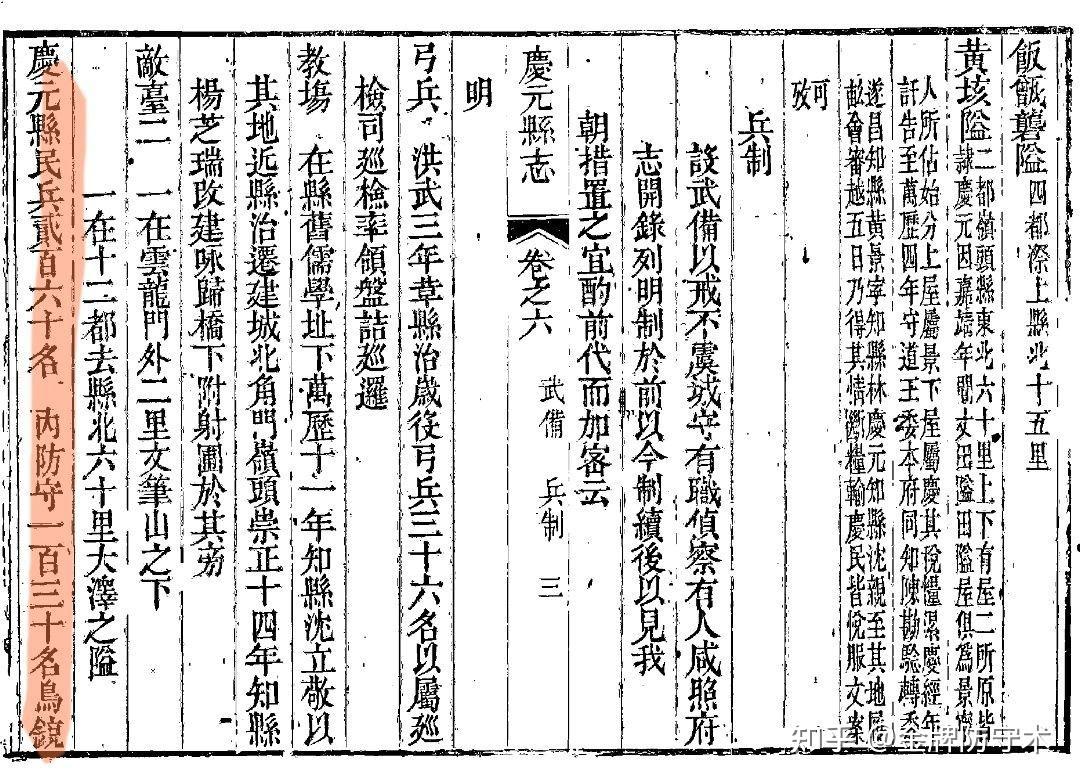 飯甑礱隘四都漈上縣北十五里
黃垓隘二都嶺頭縣東北六十里上下有屋二所原皆
隷慶元因嘉靖年間丈田隘田隘屋俱爲景寧
人所佔始分上屋屬景下屋屬慶其稅糧累慶經年
訐告至萬歷四年守道王委本府同知陳勘騐轉委
遂昌知縣黃景寧知縣林慶元知縣沈親至其地履
畝會審越五日乃得其情斷糧輸慶民皆悅服文案
可
攷
兵制
設武備以戒不虞城守有職偵察有人咸照府
志開錄列明制於前以今制續後以見我
朝措置之宜酌前代而加密云
慶元縣志 卷之六 武備 兵制 三
明
弓兵 洪武三年章縣治歲役弓兵三十六名以屬廵
檢司廵檢率領盤詰廵邏
教塲 在縣舊儒學址下萬歷十一年知縣沈立敬以
其地近縣治遷建城北角門嶺頭崇正十四年知縣
楊芝瑞改建咏歸橋下附射圃於其旁
敵臺二 一在雲龍門外二里文筆山之下
一在十二都去縣北六十里大澤之隘
慶元縣民兵貳百六十名 內防守一百三十名鳥鏡
知乎 @金牌防守术